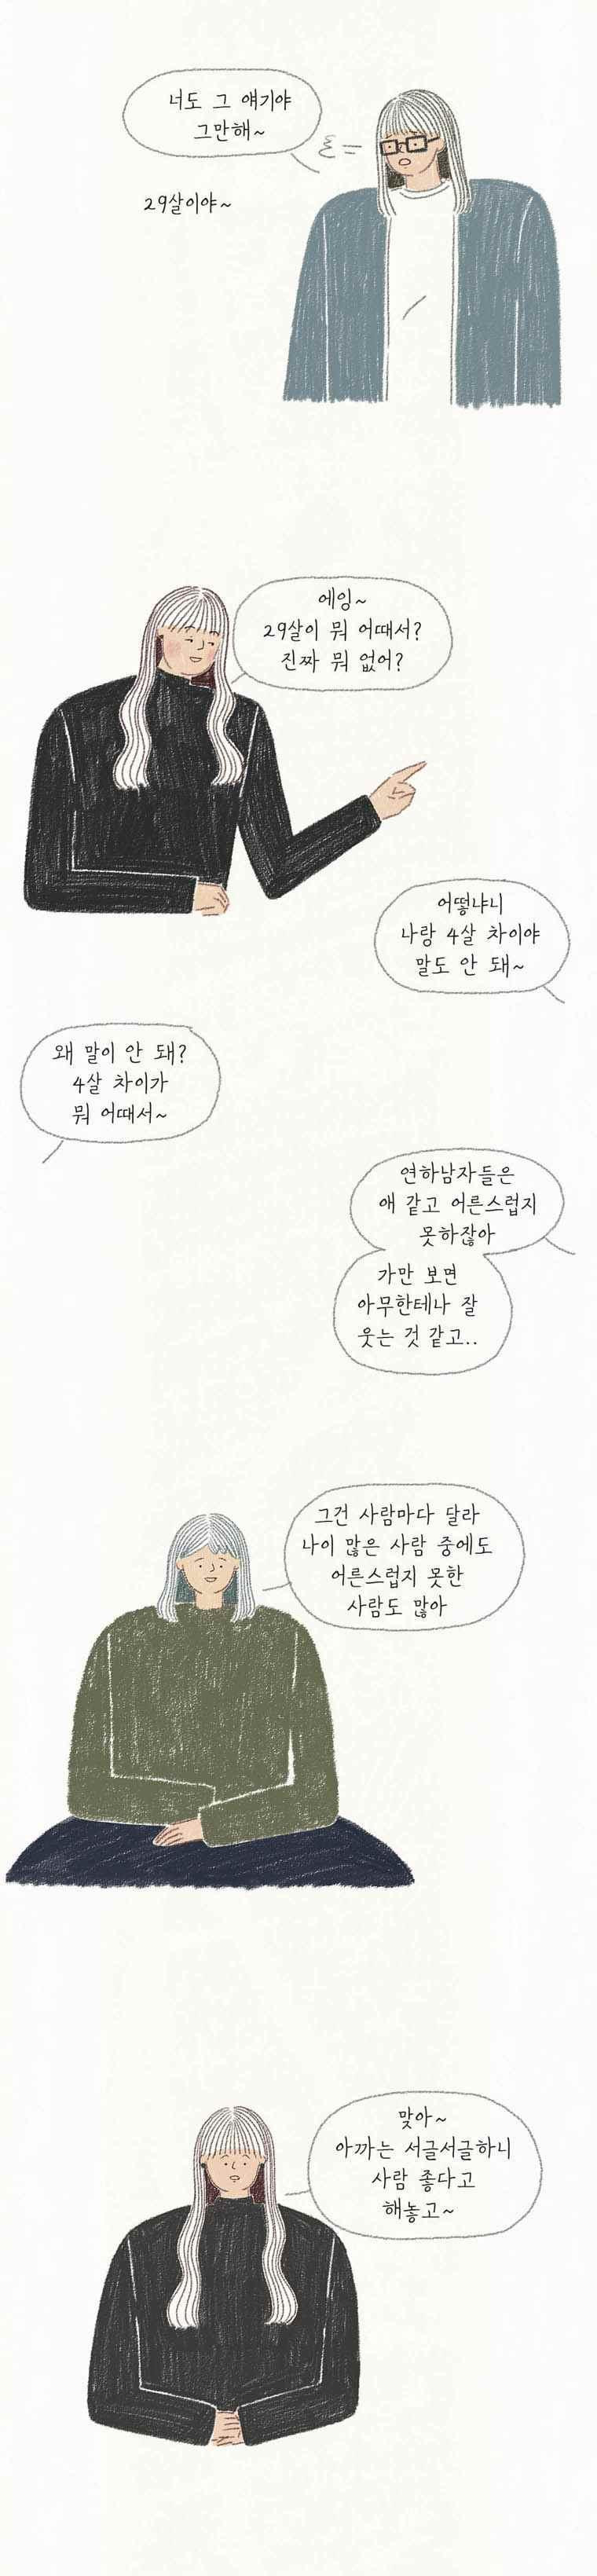 너도 그 얘기야
그만해~
29살이야~
에잉~
29살이 뭐 어때서?
진짜 뭐 없어?
어떻냐니
나랑 4살 차이야
말도 안 돼~
왜 말이 안 돼?
4살 차이가
뭐 어때서~
연하남자들은
애 같고 어른스럽지
못하잖아
가만 보면
아무한테나 잘
웃는 것 같고..
그건 사람마다 달라
나이 많은 사람 중에도
어른스럽지 못한
사람도 많아
맞아~
아까는 서글서글하니
사람 좋다고
해놓고~